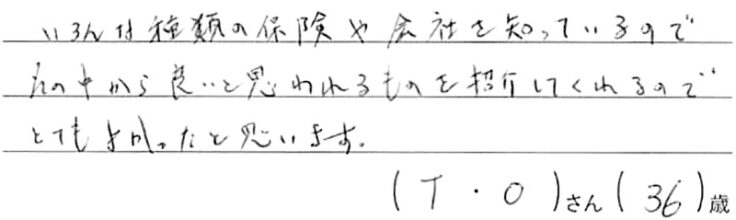 いろんな種類の保険や会社を知っているので
その中から良いと思われるものを紹介してくれるので
とても良かったと思います。
(T・O)さん(36)歳